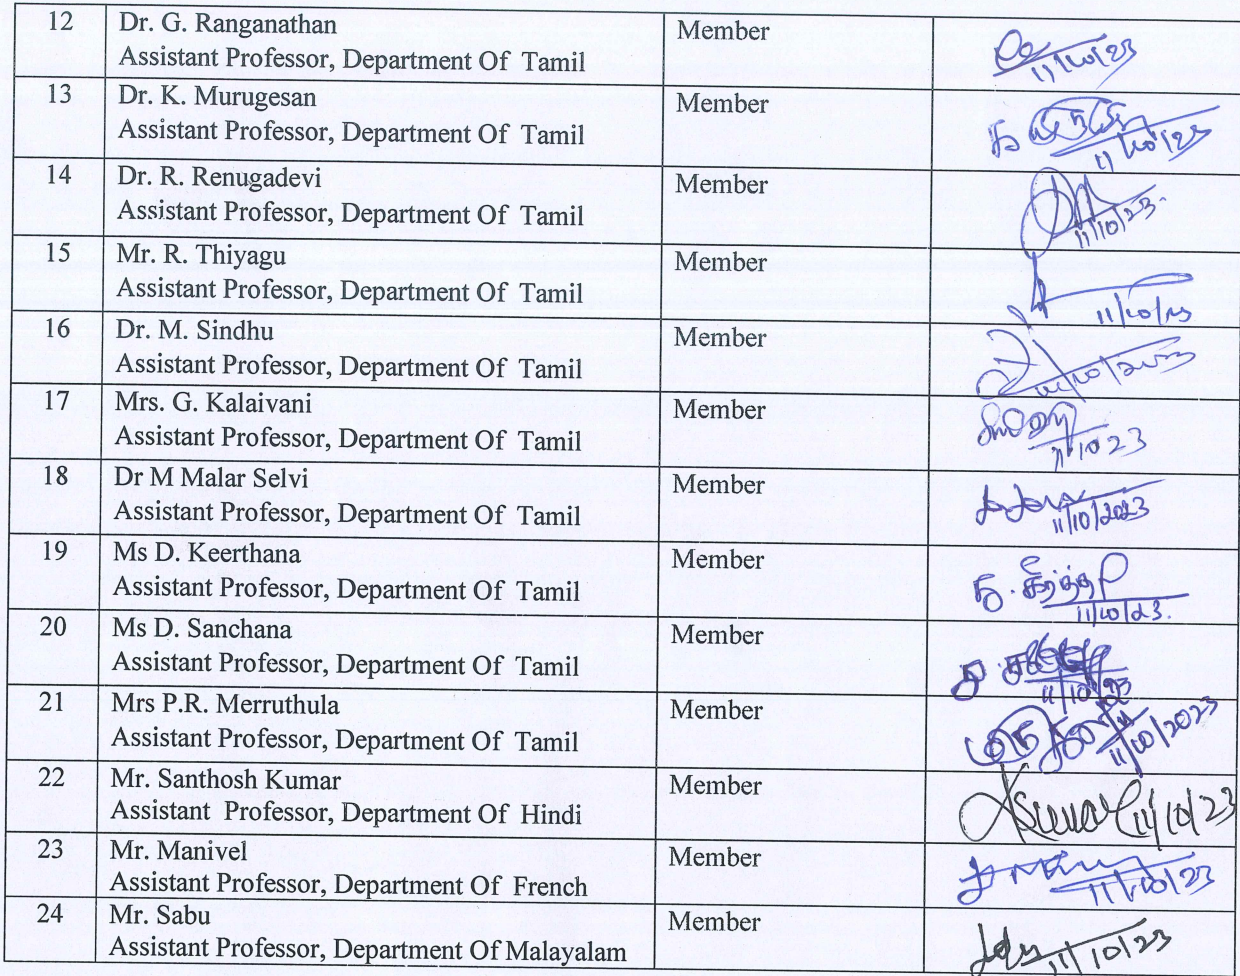 12 Dr. G. Ranganathan Member
Assistant Professor, Department Of Tamil
11/10/23
13 Dr. K. Murugesan Member
Assistant Professor, Department Of Tamil
11/10/23
14 Dr. R. Renugadevi Member
Assistant Professor, Department Of Tamil
11/10/23
15 Mr. R. Thiyagu Member
Assistant Professor, Department Of Tamil
11/10/23
16 Dr. M. Sindhu Member
Assistant Professor, Department Of Tamil
11/10/2023
17 Mrs. G. Kalaivani Member
Assistant Professor, Department Of Tamil
11/10/23
18 Dr M Malar Selvi Member
Assistant Professor, Department Of Tamil
11/10/2023
19 Ms D. Keerthana Member
Assistant Professor, Department Of Tamil
11/10/23.
20 Ms D. Sanchana Member
Assistant Professor, Department Of Tamil
11/10/23
21 Mrs P.R. Merruthula Member
Assistant Professor, Department Of Tamil
11/10/2023
22 Mr. Santhosh Kumar Member
Assistant Professor, Department Of Hindi
11/10/23
23 Mr. Manivel Member
Assistant Professor, Department Of French
11/10/23
24 Mr. Sabu Member
Assistant Professor, Department Of Malayalam
11/10/23